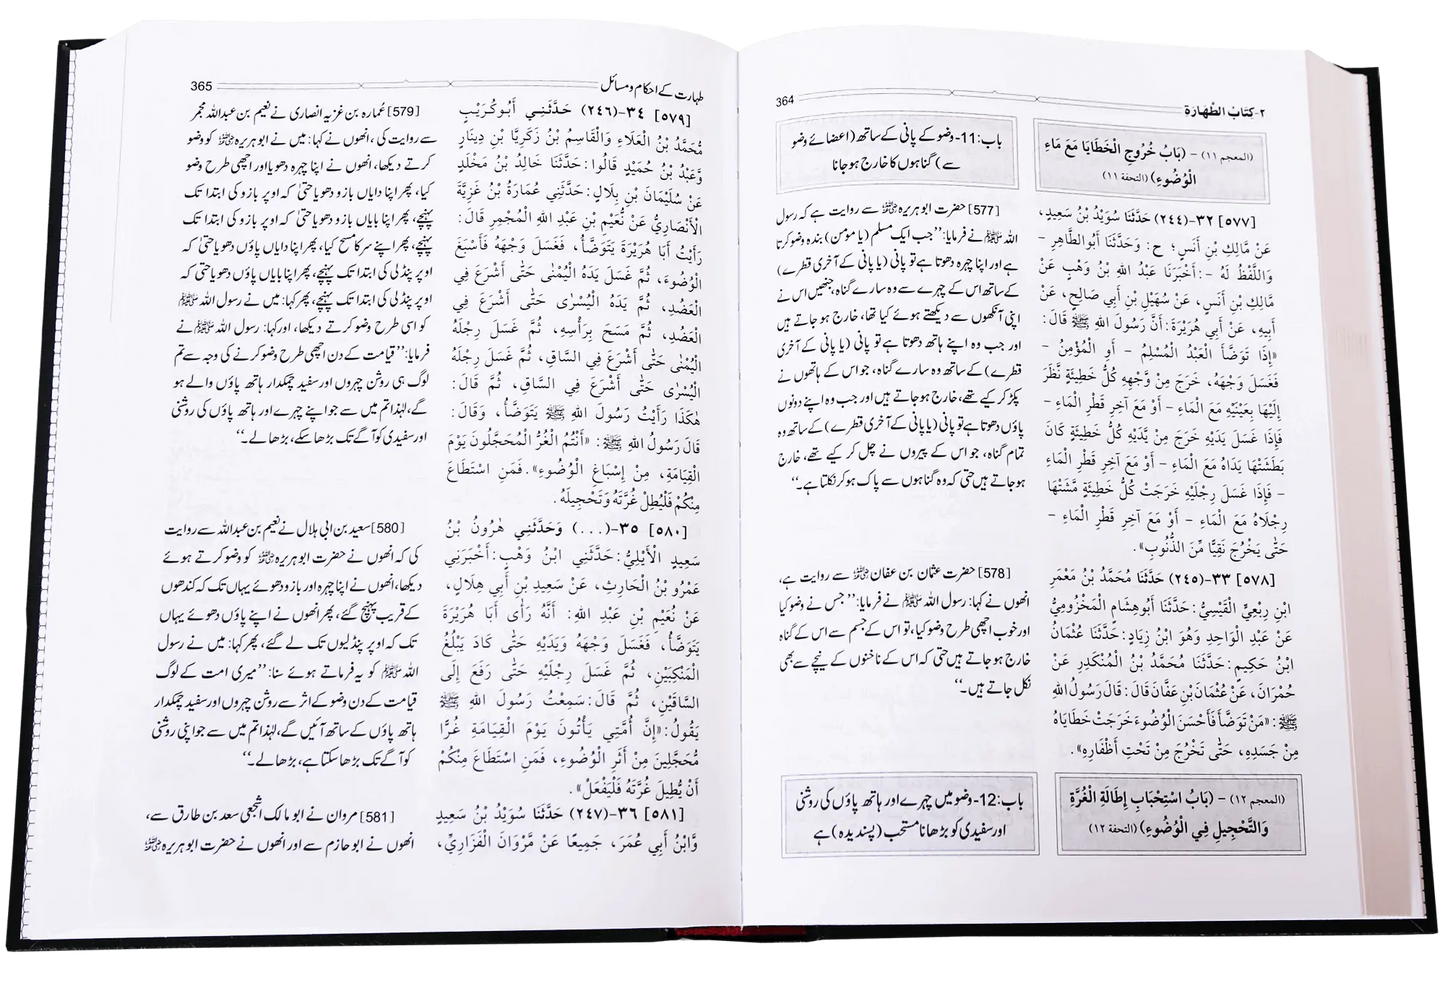 364
٢-كتابُ الطَّهارَة
(المعجم ١١) - (بَابُ خُرُوجِ الْخَطَايَا مَعَ مَاءِ
الْوُضُوءِ) (التحفة ١١)
[٥٧٧] ٣٢-(٢٤٤) حَدَّثَنَا سُوَيْدُ بْنُ سَعِيدٍ،
عَنْ مَالِكِ بْنِ أَنَسٍ؛ ح: وَحَدَّثَنَا أَبُوالطَّاهِرِ -
وَاللَّفْظُ لَهُ -: أَخْبَرَنَا عَبْدُ اللهِ بْنُ وَهْبٍ عَنْ
مَالِكِ بْنِ أَنَسٍ، عَنْ سُهَيْلِ بْنِ أَبِي صَالِحٍ، عَنْ
أَبِيهِ، عَنْ أَبِي هُرَيْرَةَ: أَنَّ رَسُولَ اللهِ ﷺ قَالَ:
«إِذَا تَوَضَّأَ الْعَبْدُ الْمُسْلِمُ - أَوِ الْمُؤْمِنُ -
فَغَسَلَ وَجْهَهُ، خَرَجَ مِنْ وَّجْهِهِ كُلُّ خَطِيئَةٍ نَّظَرَ
إِلَيْهَا بِعَيْنَيْهِ مَعَ الْمَاءِ - أَوْ مَعَ آخِرِ قَطْرِ الْمَاءِ -
فَإِذَا غَسَلَ يَدَيْهِ خَرَجَ مِنْ يَّدَيْهِ كُلُّ خَطِيئَةٍ كَانَ
بَطَشَتْهَا يَدَاهُ مَعَ الْمَاءِ - أَوْ مَعَ آخِرِ قَطْرِ الْمَاءِ
- فَإِذَا غَسَلَ رِجْلَيْهِ خَرَجَتْ كُلُّ خَطِيئَةٍ مَّشَتْهَا
رِجْلَاهُ مَعَ الْمَاءِ - أَوْ مَعَ آخِرِ قَطْرِ الْمَاءِ -
حَتَّى يَخْرُجَ نَقِيًّا مِّنَ الذُّنُوبِ».
[٥٧٨] ٣٣-(٢٤٥) حَدَّثَنَا مُحَمَّدُ بْنُ مَعْمَرِ
ابْنِ رِبْعِيٍّ الْقَيْسِيُّ: حَدَّثَنَا أَبُوهِشَامٍ الْمَخْزُومِيُّ
عَنْ عَبْدِ الْوَاحِدِ وَهُوَ ابْنُ زِيَادٍ: حَدَّثَنَا عُثْمَانُ
ابْنُ حَكِيمٍ: حَدَّثَنَا مُحَمَّدُ بْنُ الْمُنْكَدِرِ عَنْ
حُمْرَانَ، عَنْ عُثْمَانَ بْنِ عَفَّانَ قَالَ: قَالَ رَسُولُ اللهِ
ﷺ: «مَنْ تَوَضَّأَ فَأَحْسَنَ الْوُضُوءَ خَرَجَتْ خَطَايَاهُ
مِنْ جَسَدِهِ، حَتَّى تَخْرُجَ مِنْ تَحْتِ أَظْفَارِهِ».
(المعجم ١٢) - (بَابُ اسْتِحْبَابِ إِطَالَةِ الْغُرَّةِ
وَالتَّحْجِيلِ فِي الْوُضُوءِ) (التحفة ١٢)
باب:11-وضو کے پانی کے ساتھ (اعضائے وضو
سے) گناہوں کا خارج ہو جانا
[577] حضرت ابوہریرہ رضی اللہ عنہ سے روایت ہے کہ رسول
اللہ ﷺ نے فرمایا: ”جب ایک مسلم (یا مومن) بندہ وضو کرتا
ہے اور اپنا چہرہ دھوتا ہے تو پانی (یا پانی کے آخری قطرے)
کے ساتھ اس کے چہرے سے وہ سارے گناہ، جنھیں اس نے
اپنی آنکھوں سے دیکھتے ہوئے کیا تھا، خارج ہو جاتے ہیں
اور جب وہ اپنے ہاتھ دھوتا ہے تو پانی (یا پانی کے آخری
قطرے) کے ساتھ وہ سارے گناہ، جو اس کے ہاتھوں نے
پکڑ کر کیے تھے، خارج ہو جاتے ہیں اور جب وہ اپنے دونوں
پاؤں دھوتا ہے تو پانی (یا پانی کے آخری قطرے) کے ساتھ وہ
تمام گناہ، جو اس کے پیروں نے چل کر کیے تھے، خارج
ہو جاتے ہیں حتی کہ وہ گناہوں سے پاک ہو کر نکلتا ہے۔“
[578] حضرت عثمان بن عفان رضی اللہ عنہ سے روایت ہے،
انھوں نے کہا: رسول اللہ ﷺ نے فرمایا: ”جس نے وضو کیا
اور خوب اچھی طرح وضو کیا، تو اس کے جسم سے اس کے گناہ
خارج ہو جاتے ہیں حتی کہ اس کے ناخنوں کے نیچے سے بھی
نکل جاتے ہیں۔“
باب:12-وضو میں چہرے اور ہاتھ پاؤں کی روشنی
اور سفیدی کو بڑھانا مستحب (پسندیدہ) ہے
طہارت کے احکام و مسائل
365
[٥٧٩] ٣٤-(٢٤٦) حَدَّثَنِي أَبُوكُرَيْبٍ
مُّحَمَّدُ بْنُ الْعَلَاءِ وَالْقَاسِمُ بْنُ زَكَرِيَّا بْنِ دِينَارٍ
وَّعَبْدُ بْنُ حُمَيْدٍ قَالُوا: حَدَّثَنَا خَالِدُ بْنُ مَخْلَدٍ
عَنْ سُلَيْمَانَ بْنِ بِلَالٍ: حَدَّثَنِي عُمَارَةُ بْنُ غَزِيَّةَ
الْأَنْصَارِيُّ عَنْ نُّعَيْمِ بْنِ عَبْدِ اللهِ الْمُجْمِرِ قَالَ:
رَأَيْتُ أَبَا هُرَيْرَةَ يَتَوَضَّأُ، فَغَسَلَ وَجْهَهُ فَأَسْبَغَ
الْوُضُوءَ، ثُمَّ غَسَلَ يَدَهُ الْيُمْنٰى حَتّٰى أَشْرَعَ فِي
الْعَضُدِ، ثُمَّ يَدَهُ الْيُسْرٰى حَتّٰى أَشْرَعَ فِي
الْعَضُدِ، ثُمَّ مَسَحَ بِرَأْسِهِ، ثُمَّ غَسَلَ رِجْلَهُ
الْيُمْنٰى حَتّٰى أَشْرَعَ فِي السَّاقِ، ثُمَّ غَسَلَ رِجْلَهُ
الْيُسْرٰى حَتّٰى أَشْرَعَ فِي السَّاقِ، ثُمَّ قَالَ:
هٰكَذَا رَأَيْتُ رَسُولَ اللهِ ﷺ يَتَوَضَّأُ، وَقَالَ:
قَالَ رَسُولُ اللهِ ﷺ: «أَنْتُمُ الْغُرُّ الْمُحَجَّلُونَ يَوْمَ
الْقِيَامَةِ، مِنْ إِسْبَاغِ الْوُضُوءِ». فَمَنِ اسْتَطَاعَ
مِنْكُمْ فَلْيُطِلْ غُرَّتَهُ وَتَحْجِيلَهُ.
[٥٨٠] ٣٥-(...) وَحَدَّثَنِي هَارُونُ بْنُ
سَعِيدٍ الْأَيْلِيُّ: حَدَّثَنِي ابْنُ وَهْبٍ: أَخْبَرَنِي
عَمْرُو بْنُ الْحَارِثِ، عَنْ سَعِيدِ بْنِ أَبِي هِلَالٍ،
عَنْ نُعَيْمِ بْنِ عَبْدِ اللهِ: أَنَّهُ رَأٰى أَبَا هُرَيْرَةَ
يَتَوَضَّأُ، فَغَسَلَ وَجْهَهُ وَيَدَيْهِ حَتّٰى كَادَ يَبْلُغُ
الْمَنْكِبَيْنِ، ثُمَّ غَسَلَ رِجْلَيْهِ حَتّٰى رَفَعَ إِلَى
السَّاقَيْنِ، ثُمَّ قَالَ: سَمِعْتُ رَسُولَ اللهِ ﷺ
يَقُولُ: «إِنَّ أُمَّتِي يَأْتُونَ يَوْمَ الْقِيَامَةِ غُرًّا
مُّحَجَّلِينَ مِنْ أَثَرِ الْوُضُوءِ، فَمَنِ اسْتَطَاعَ مِنْكُمْ
أَنْ يُّطِيلَ غُرَّتَهُ فَلْيَفْعَلْ».
[٥٨١] ٣٦-(٢٤٧) حَدَّثَنَا سُوَيْدُ بْنُ سَعِيدٍ
وَّابْنُ أَبِي عُمَرَ، جَمِيعًا عَنْ مَّرْوَانَ الْفَزَارِيِّ،
[579] عُمارہ بن غزیہ انصاری نے نعیم بن عبداللہ مجمر
سے روایت کی، انھوں نے کہا: میں نے ابوہریرہ رضی اللہ عنہ کو وضو
کرتے دیکھا، انھوں نے اپنا چہرہ دھویا اور اچھی طرح وضو
کیا، پھر اپنا دایاں بازو دھویا حتی کہ اوپر بازو کی ابتدا تک
پہنچے، پھر اپنا بایاں بازو دھویا حتی کہ اوپر بازو کی ابتدا تک
پہنچے، پھر اپنے سر کا مسح کیا، پھر اپنا دایاں پاؤں دھویا حتی کہ
اوپر پنڈلی کی ابتدا تک پہنچے، پھر اپنا بایاں پاؤں دھویا حتی کہ
اوپر پنڈلی کی ابتدا تک پہنچے، پھر کہا: میں نے رسول اللہ ﷺ
کو اسی طرح وضو کرتے دیکھا، اور کہا: رسول اللہ ﷺ نے
فرمایا: ”قیامت کے دن اچھی طرح وضو کرنے کی وجہ سے تم
لوگ ہی روشن چہروں اور سفید چمکدار ہاتھ پاؤں والے ہو
گے، لہٰذا تم میں سے جو اپنے چہرے اور ہاتھ پاؤں کی روشنی
اور سفیدی کو آگے تک بڑھا سکے، بڑھا لے۔“
[580] سعید بن ابی ہلال نے نعیم بن عبداللہ سے روایت
کی کہ انھوں نے حضرت ابوہریرہ رضی اللہ عنہ کو وضو کرتے ہوئے
دیکھا، انھوں نے اپنا چہرہ اور بازو دھوئے یہاں تک کہ کندھوں
کے قریب پہنچ گئے، پھر انھوں نے اپنے پاؤں دھوئے یہاں
تک کہ اوپر پنڈلیوں تک لے گئے، پھر کہا: میں نے رسول
اللہ ﷺ کو یہ فرماتے ہوئے سنا: ”میری امت کے لوگ
قیامت کے دن وضو کے اثر سے روشن چہروں اور سفید چمکدار
ہاتھ پاؤں کے ساتھ آئیں گے، لہٰذا تم میں سے جو اپنی روشنی
کو آگے تک بڑھا سکتا ہے، بڑھا لے۔“
[581] مروان نے ابو مالک اشجعی سعد بن طارق سے،
انھوں نے ابو حازم سے اور انھوں نے حضرت ابوہریرہ رضی اللہ عنہ